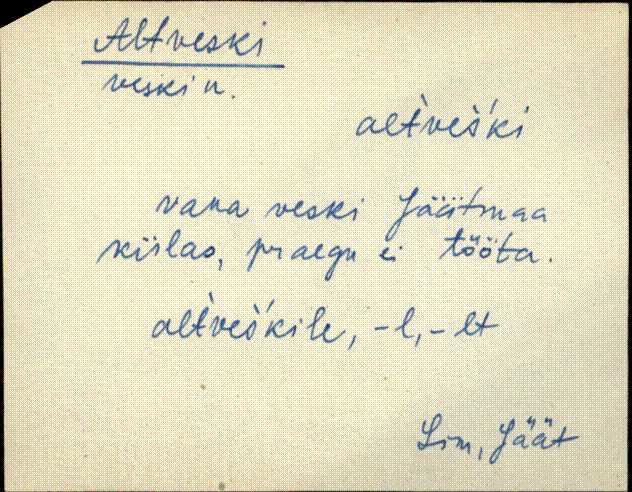 Altveski
veski n.
alt̀veš́ki
vana veski Jäätmaa
külas, praegu ei tööta.
alt̀veš́kile, -l, -lt
Sim, Jäät